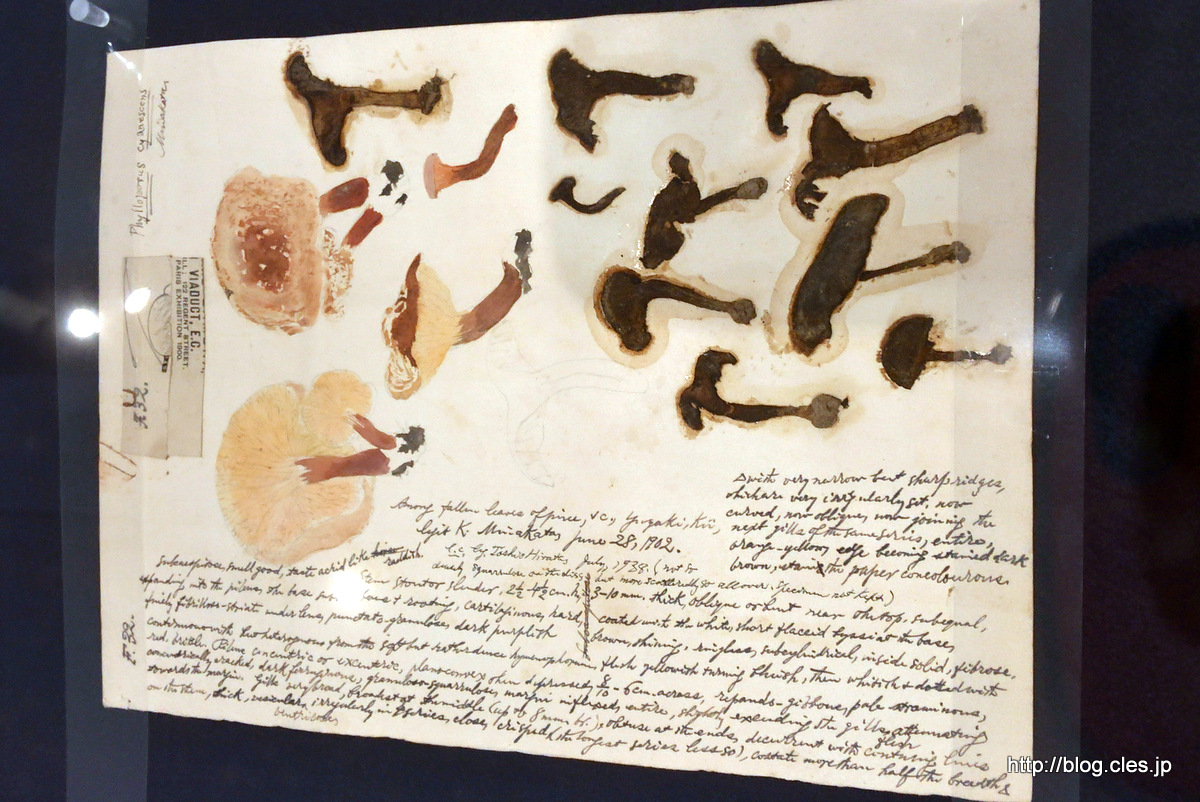 Phylloporus cyanescens
Minakata
VIADUCT, E.C.
ILL; 122 REGENT STREET.
PARIS EXHIBITION 1900.
F. 32.
F. 32.
Among fallen leaves of pine, &c,
legit K. Minakata, June 28, 1902.
July, 1938. (not so
but more scatteredly so all over. Specimen not kept)
Subcaespitose, smell good, taste acrid like raddish.
Stem stout or slender, 2½-4½ cm. h, 3-10 mm. thick, oblique or bent near the top, subequal,
expanding into the pileus, the base rooting, cartilaginous, hard, coated with the white, short flaccid byssi at the base,
finely fibrillose-striate under lens, punctate-granulose, dark purplish brown, shining, ringless, subcylindrical, inside solid, fibrose,
conterminous with but heterogenous from the soft but rather dense hymenophorum, flesh yellowish turning bluish, then whitish & dotted with
red, brittle. Pileus concentric or excentric, plano-convex then depressed, 6 cm. across, repando-gibbous, pale stramineous,
concentrically cracked, dark ferruginous, granuloso-squarrulose, margin inflexed, entire, slightly exceeding the gills, flesh attenuating
towards the margin. Gills very broad, broadest at the middle (up to 8 mm br.), obtuse at the ends, decurrent with continuing lines
on the stem, thick, irregularly in series, close, crisped (the longest series less so), costate more than half the breadth &
ventricose
with very narrow but sharp ridges,
which are very irregularly set, now
curved, now oblique, now joining the
next gills of the same series, entire,
orange-yellow, edge becoming stained dark
brown, staining the paper concolourous.
http://blog.cles.jp